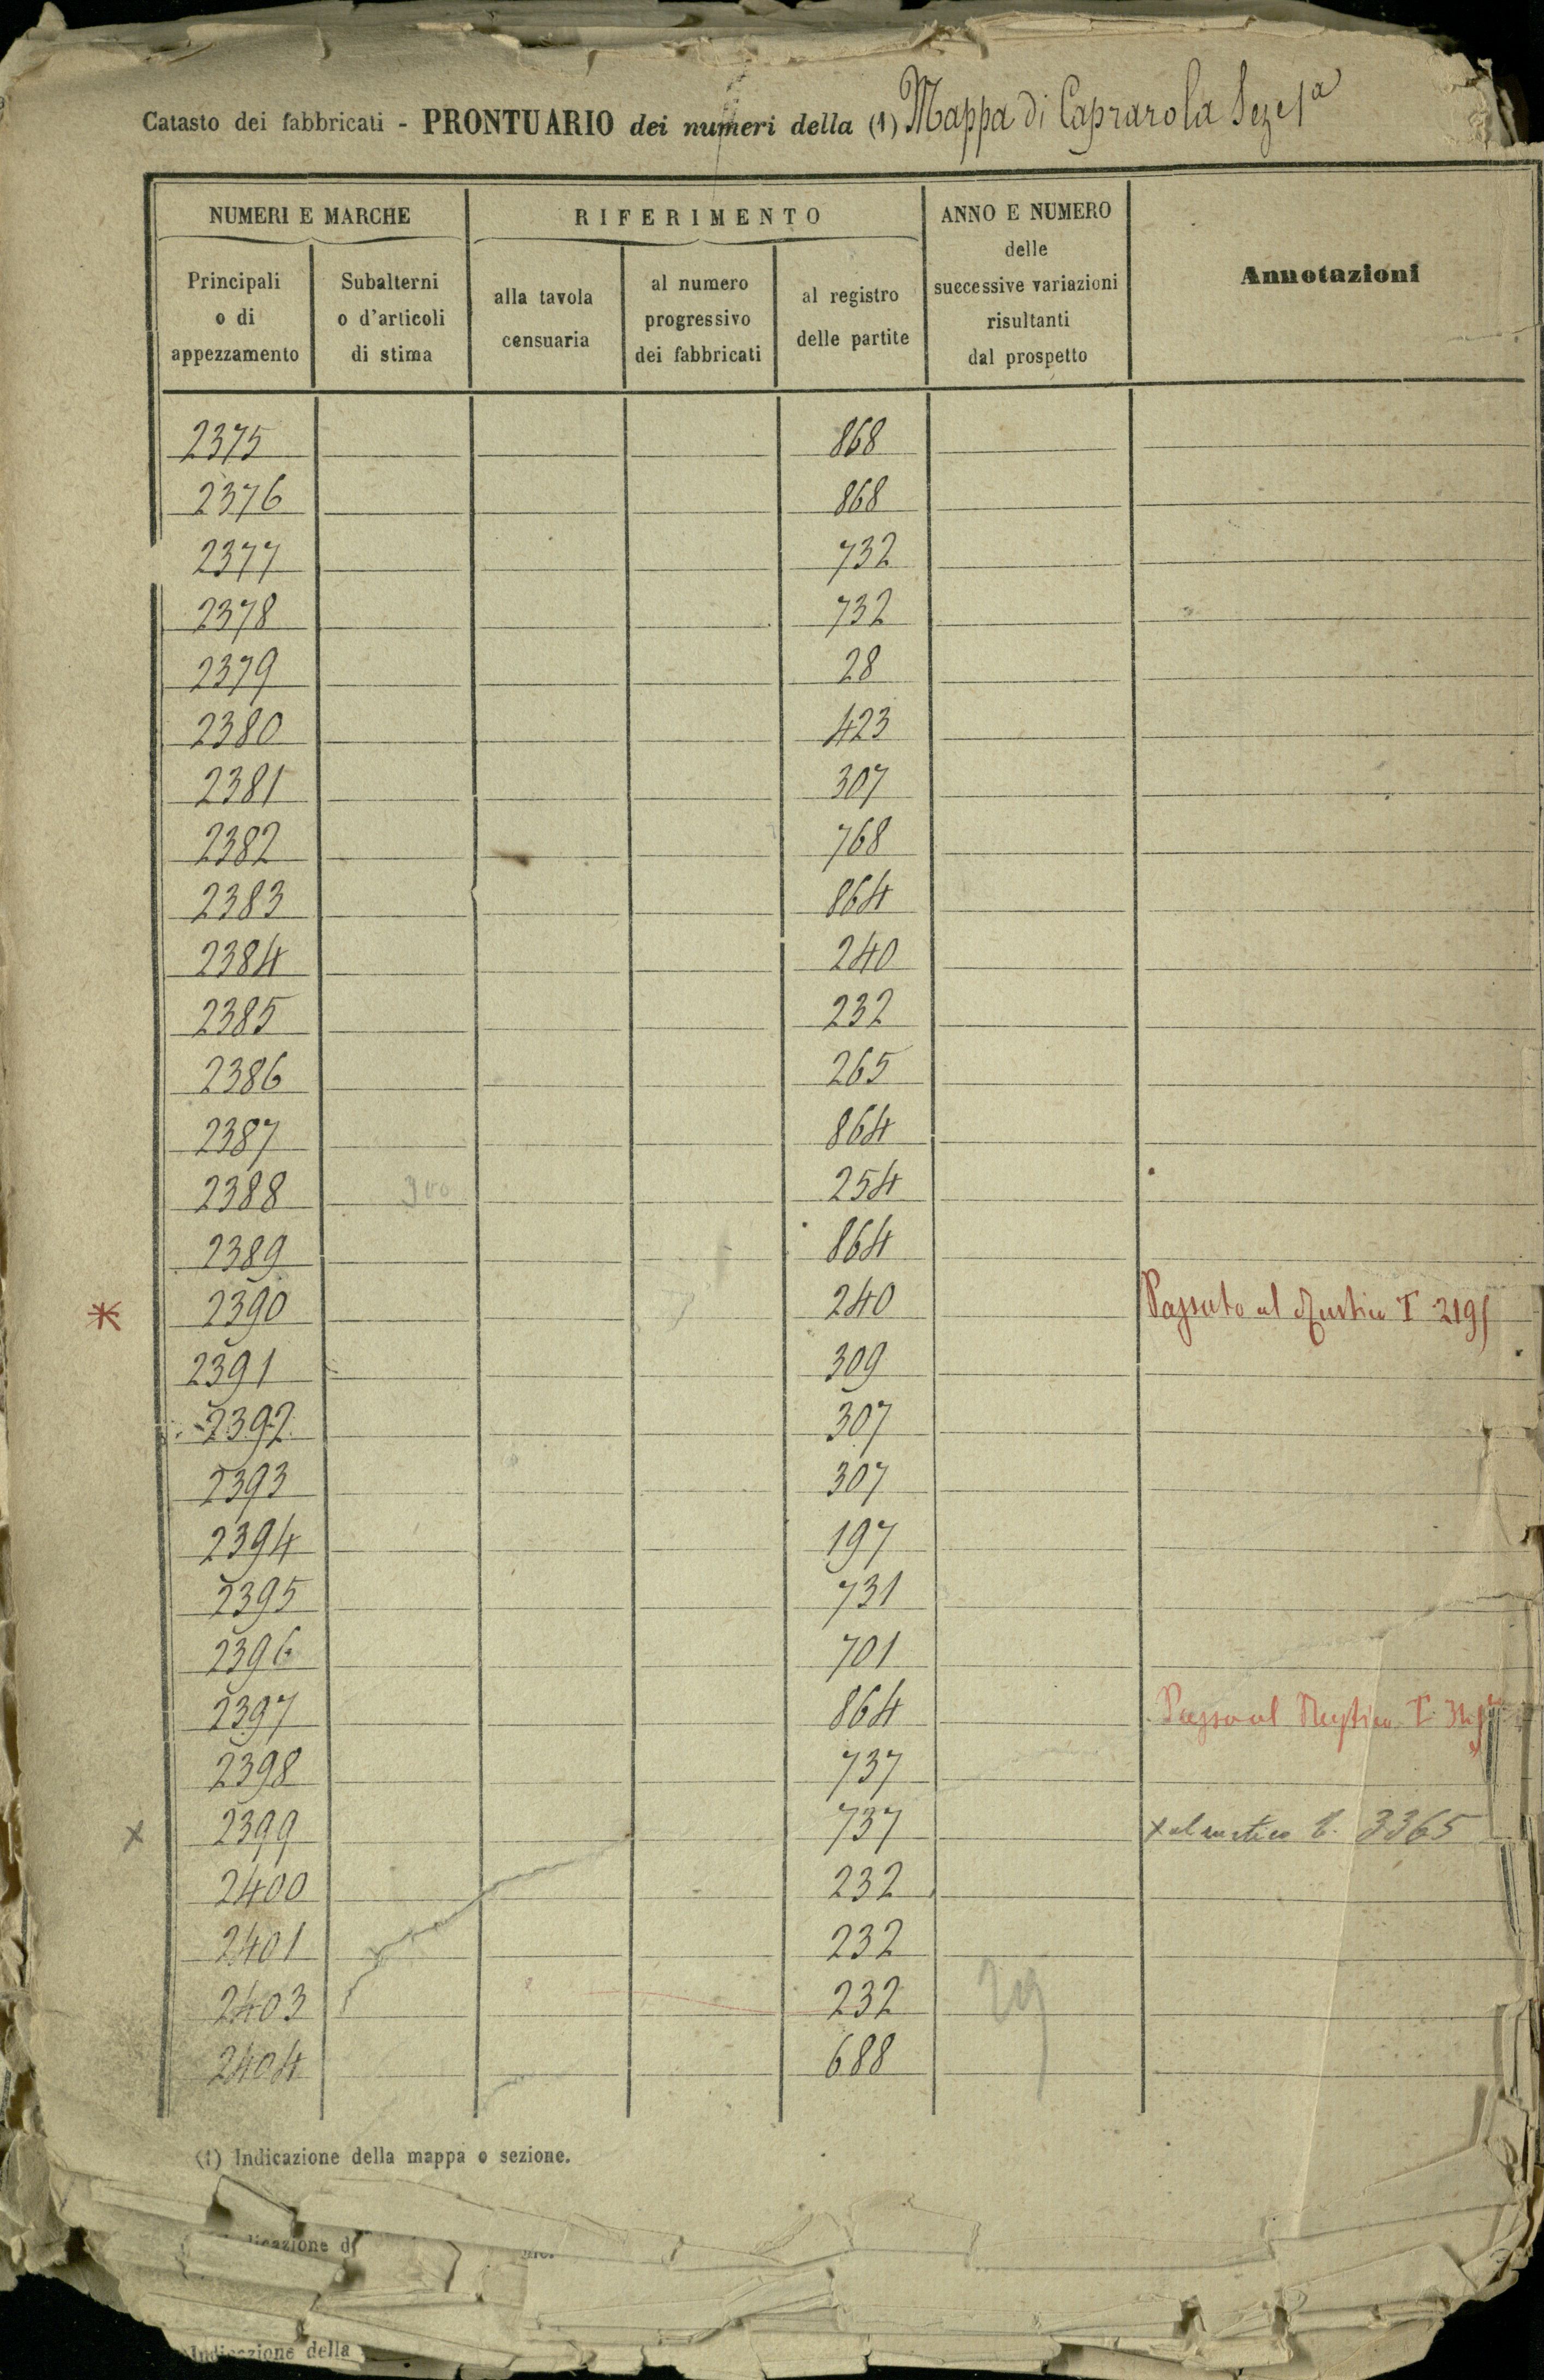 Catasto dei fabbricati - PRONTUARIO dei numeri della (1) Mappa di Caprarola Sez e 1ª
NUMERI E MARCHE RIFERIMENTO ANNO E NUMERO delle successive variazioni risultanti dal prospetto Annotazioni
Principali o di appezzamento Subalterni o d'articoli di stima alla tavola censuaria al numero progressivo dei fabbricati al registro delle partite
2375 868
2376 868
2377 732
2378 732
2379 28
2380 423
2381 307
2382 768
2383 864
2384 240
2385 232
2386 265
2387 864
2388 300 254
2389 864
* 2390 240 Passato al Rustico T 2195
2391 309
2392 307
2393 307
2394 197
2395 731
2396 701
2397 864 Rustico T.
2398 737
x 2399 737 x al rustico T. 3365
2400 232
2401 232
2403 232 29
2404 688
(1) Indicazione della mappa o sezione.
dicazione d
Indicazione della